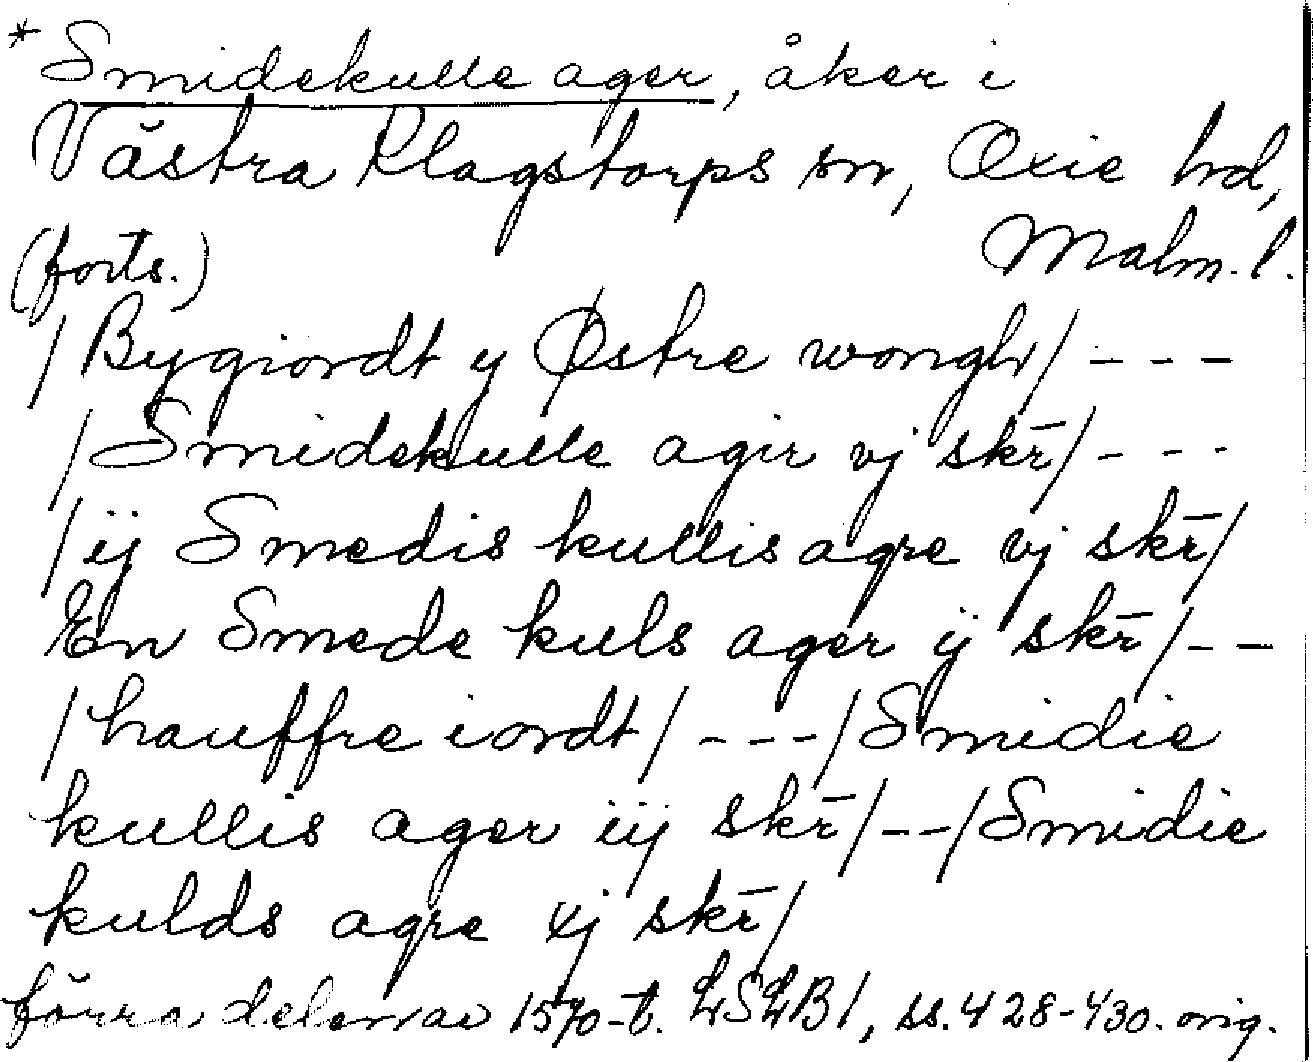 * Smidekulle ager, åker i
Västra Klagstorps sn, Oxie hd,
(forts.) Malm. l.
/Bygiordt y Østre wongh/ - - -
/Smidekulle agir vj skr̄/ - - -
/ij Smedis kullis agre vj skr̄/
En Smede kuls ager ij skr̄/ - -
/hauffre iordt/ - - - /Smidie
kullis ager iij skr̄/ - - /Smidie
kulds agre xj skr̄/
förra delen av 1570-t. LSLB1, ss. 428-430. orig.